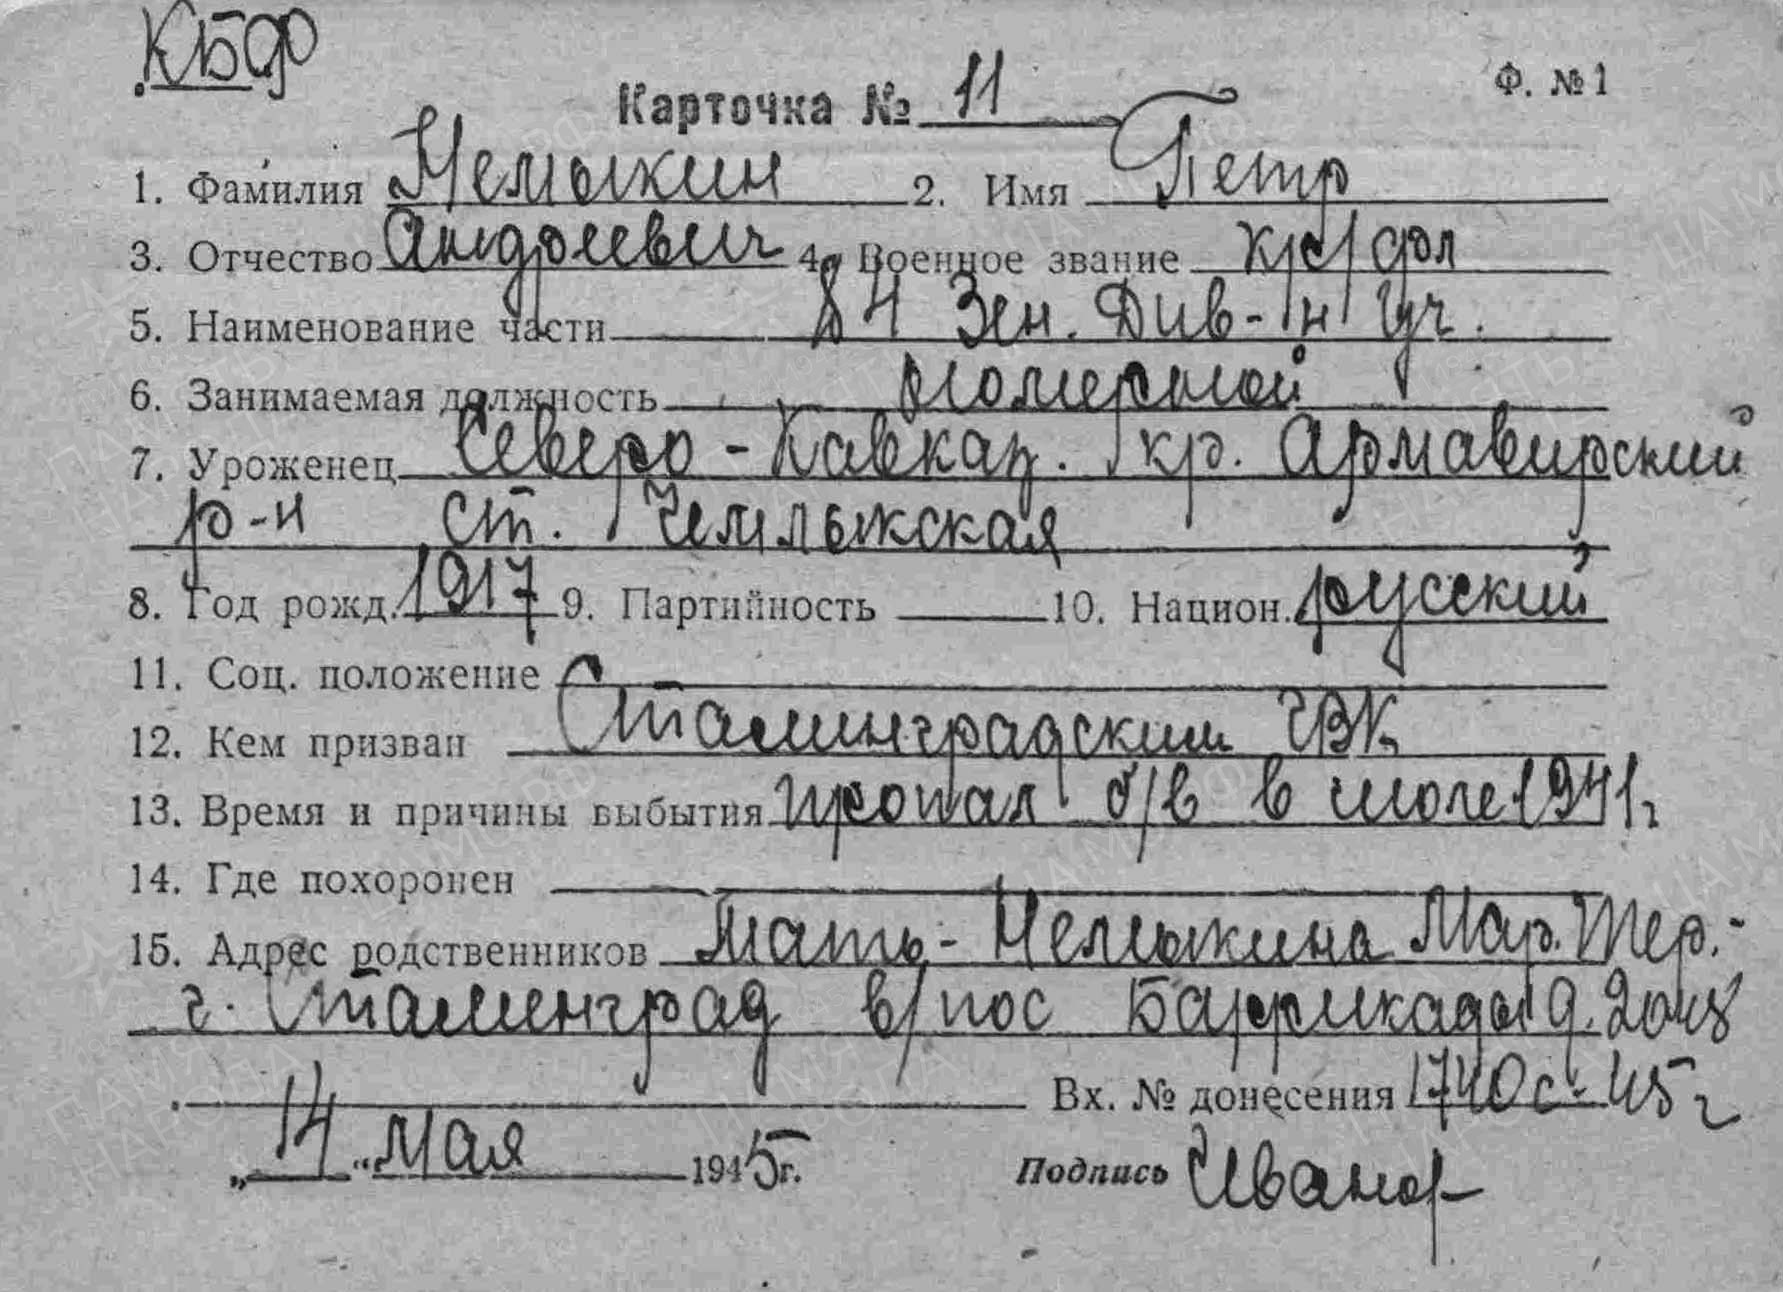 КБФ
Карточка № 11 Ф. № 1
1. Фамилия Немыкин 2. Имя Петр
3. Отчество Андреевич 4. Военное звание кр/фл
5. Наименование части 84 Зен. Див-н уч.
6. Занимаемая должность номерной
7. Уроженец Северо-Кавказ. кр. Армавирский
р-н ст. Чемлыкская
8. Год рожд. 1917 9. Партийность 10. Национ. русский
11. Соц. положение
12. Кем призван Сталинградским ГВК
13. Время и причины выбытия пропал б/в в июле 1941г
14. Где похоронен
15. Адрес родственников Мать - Немыкина Мар. Тер.-
г. Сталинград в/пос Баррикады д.
Вх. № донесения 1740с-45г
„14“ мая 1945г. Подпись Иванов